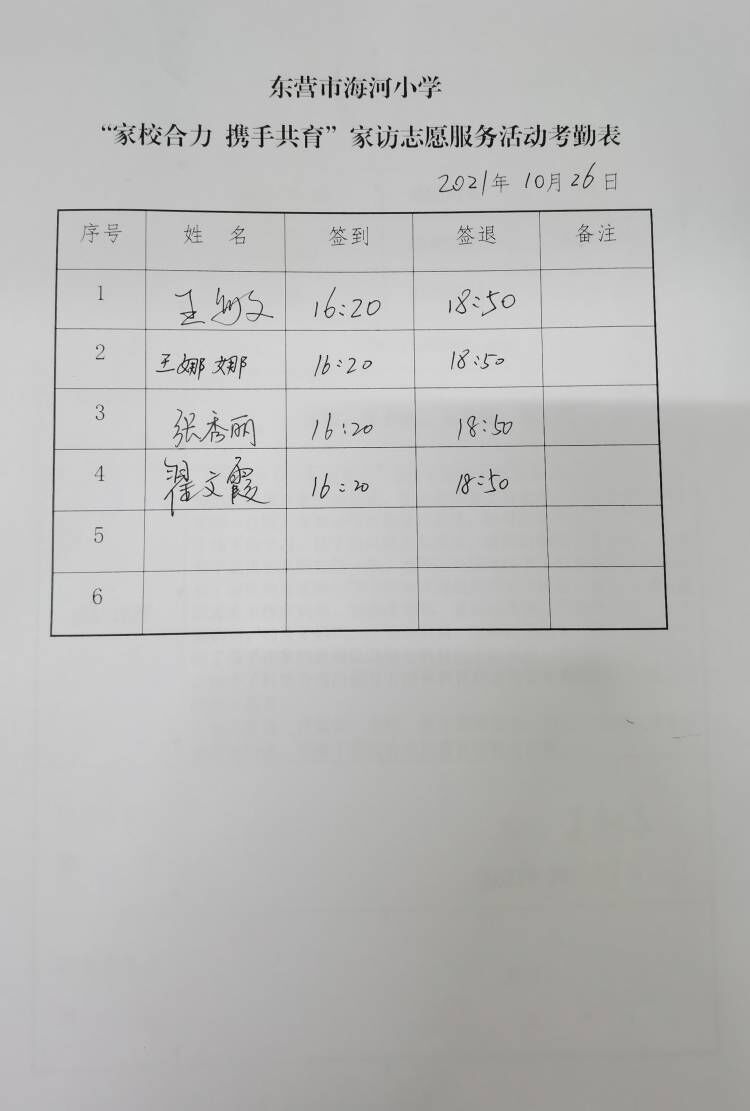 东营市海河小学
“‘家校合力 携手共育” 家访志愿服务活动考勤表
2021年 10月26日
序号 姓 名 签到 签退 备注
1 王 文 16:20 18:50
2 王娜娜 16:20 18:50
3 张秀丽 16:20 18:50
4 翟文霞 16:20 18:50
5
6